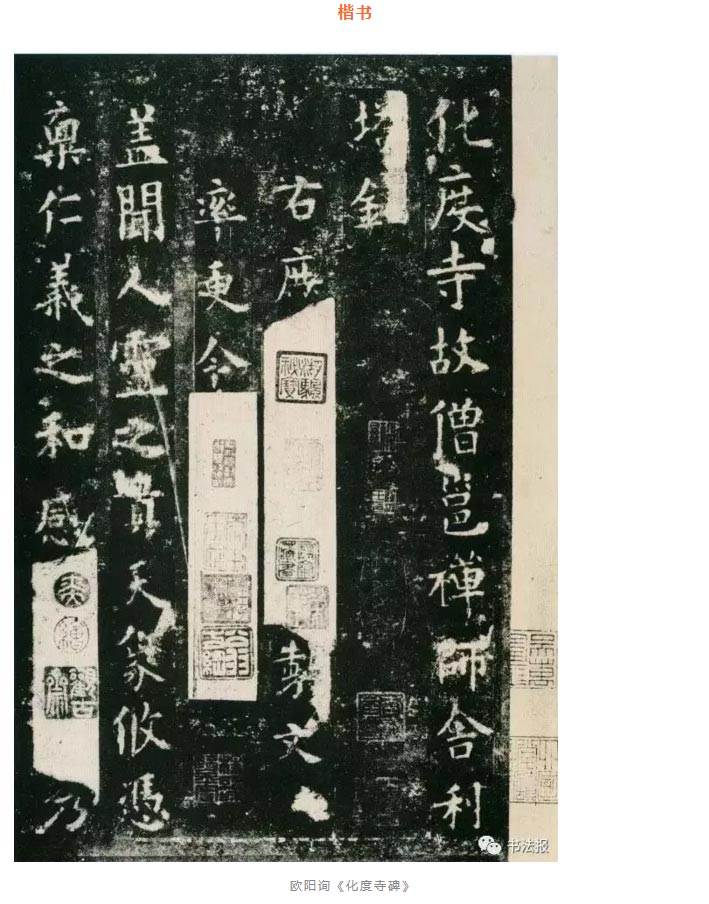 楷书
化度寺故僧邕禪師舍利
塔銘
右庶製文
率更令
盖聞人靈之貴天象攸憑
稟仁義之和感乃
书法报
欧阳询《化度寺碑》